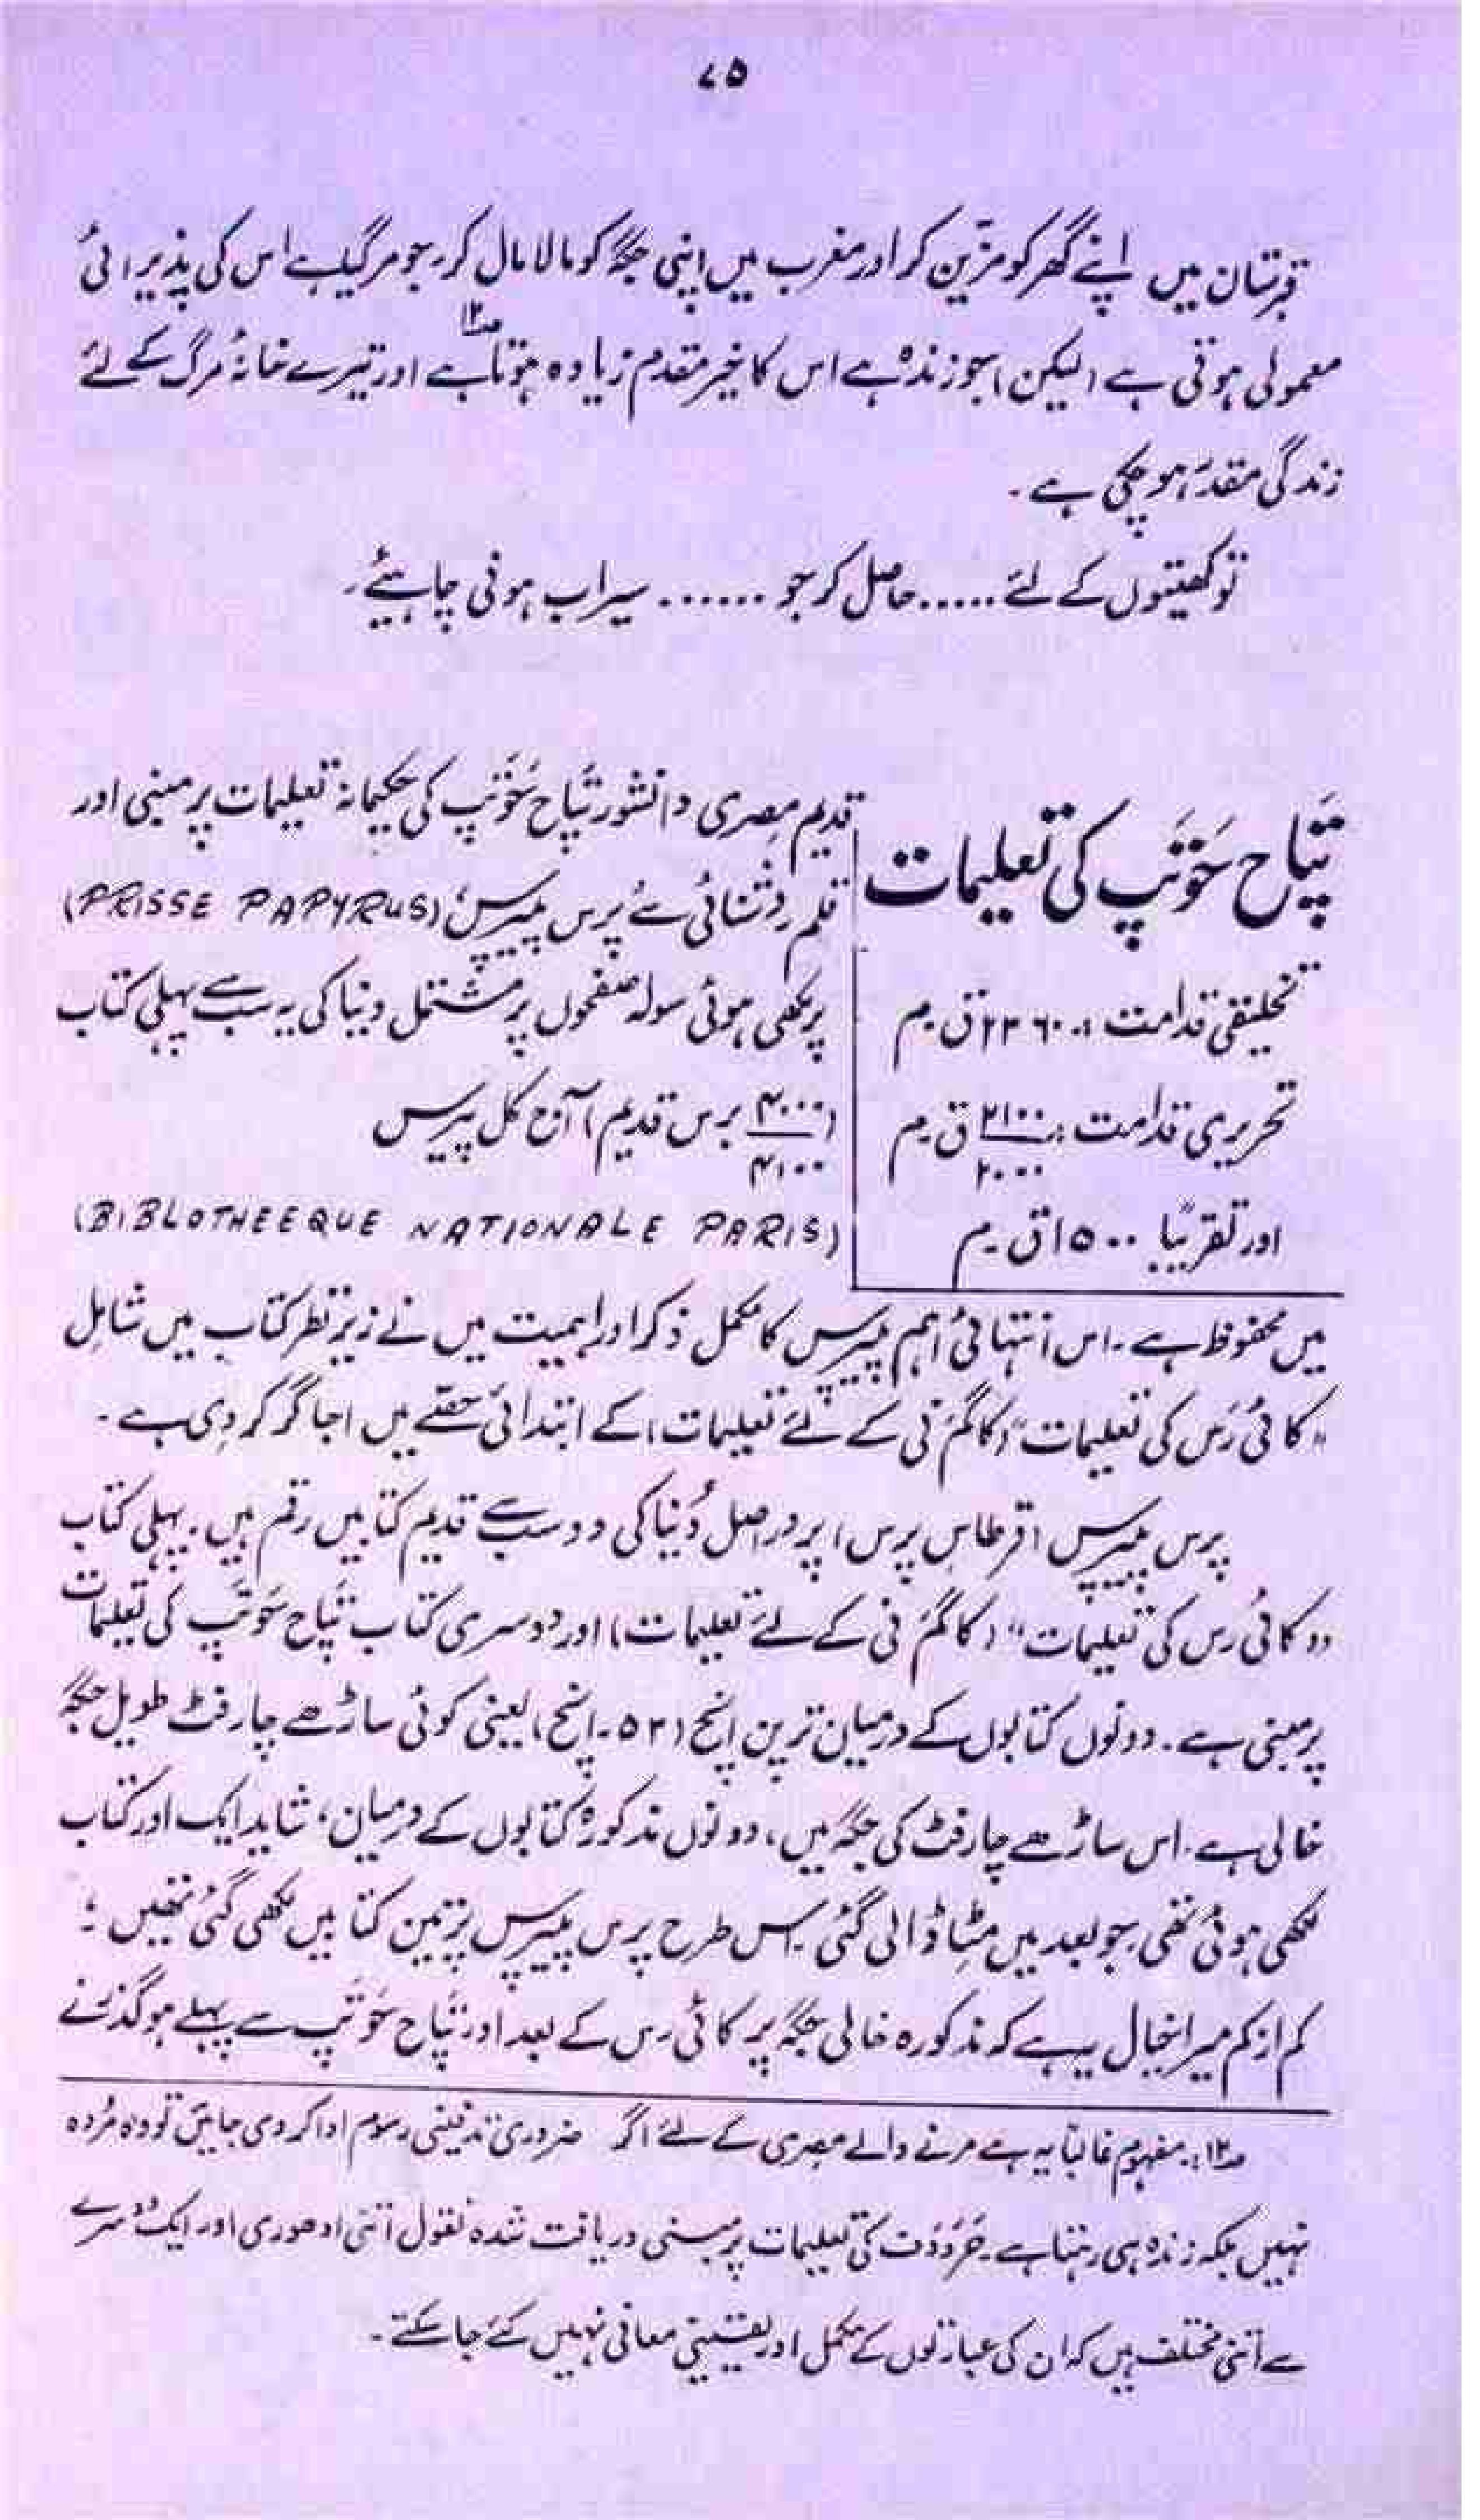 ۷۵
قبرستان میں اپنے گھر کو مزّین کر اور مغرب میں اپنی جگہ کو مالا مال کر۔ جو مر گیا ہے اس کی پذیرائی
معمولی ہوتی ہے (لیکن) جو زندہ ہے اس کا خیر مقدم زیادہ ہوتا ہے ۱۲؎ اور تیرے خانۂ مرگ کے لئے
زندگی مقدر ہو چکی ہے۔
تو کھیتوں کے لئے ..... حاصل کر جو ...... سیراب ہونی چاہیئے۔
پتاح حَوتَپ کی تعلیمات
تخلیقی قدامت :۔ ۲۳۶۰ ق۔م
تحریری قدامت :۔ ۲۱۰۰/۲۰۰۰ ق۔م
اور تقریباً ۱۵۰۰ ق۔م
قدیم مصری دانشور پتاح حَوتَپ کی حکیمانہ تعلیمات پر مبنی اور
قلم روشنائی سے پرس پیپرس، (PRISSE PAPYRUS)
پر لکھی ہوئی سولہ صفحوں پر مشتمل دنیا کی یہ سب سے پہلی کتاب
(۴۰۰۰/۴۱۰۰ برس قدیم) آج کل پیرس
(BIBLOTHEEQUE NATIONALE PARIS)
میں محفوظ ہے۔ اس انتہائی اہم پیپرس کا مکمل ذکر اور اہمیت میں نے زیر نظر کتاب میں شامل
"کائی رَس کی تعلیمات" (کاگم نی کے لئے تعلیمات) کے ابتدائی حصّے میں اجاگر کر دی ہے۔
پرس پیپرس (قرطاسِ پرس) پر دراصل دُنیا کی دو سب سے قدیم کتابیں رقم ہیں۔ پہلی کتاب
"کائی رس کی تعلیمات" (کاگم نی کے لئے تعلیمات) اور دوسری کتاب پتاح حَوتَپ کی تعلیمات
پر مبنی ہے۔ دونوں کتابوں کے درمیان ترپن انچ (۵۳۔انچ) یعنی کوئی ساڑھے چار فٹ طویل جگہ
خالی ہے۔ اس ساڑھے چار فٹ کی جگہ میں، دونوں مذکورہ کتابوں کے درمیان، شاید ایک اور کتاب
لکھی ہوئی تھی جو بعد میں مٹا ڈالی گئی۔ اس طرح پرس پیپرس پر تین کتابیں لکھی گئی تھیں؛
کم از کم میرا خیال یہ ہے کہ مذکورہ خالی جگہ پر کائی رس کے بعد اور پتاح حَوتَپ سے پہلے ہو گذرنے
۱۲؎:۔ مفہوم غالباً یہ ہے مرنے والے مصری کے لئے اگر ضروری تدفینی رسوم ادا کر دی جائیں تو وہ مُردہ
نہیں بلکہ زندہ ہی رہتا ہے۔ حَردَدَف کی تعلیمات پر مبنی دریافت شدہ نقول اتنی ادھوری اور ایک دوسرے
سے اتنی مختلف ہیں کہ ان کی عبارتوں کے مکمل اور یقینی معانی نہیں کئے جا سکتے۔